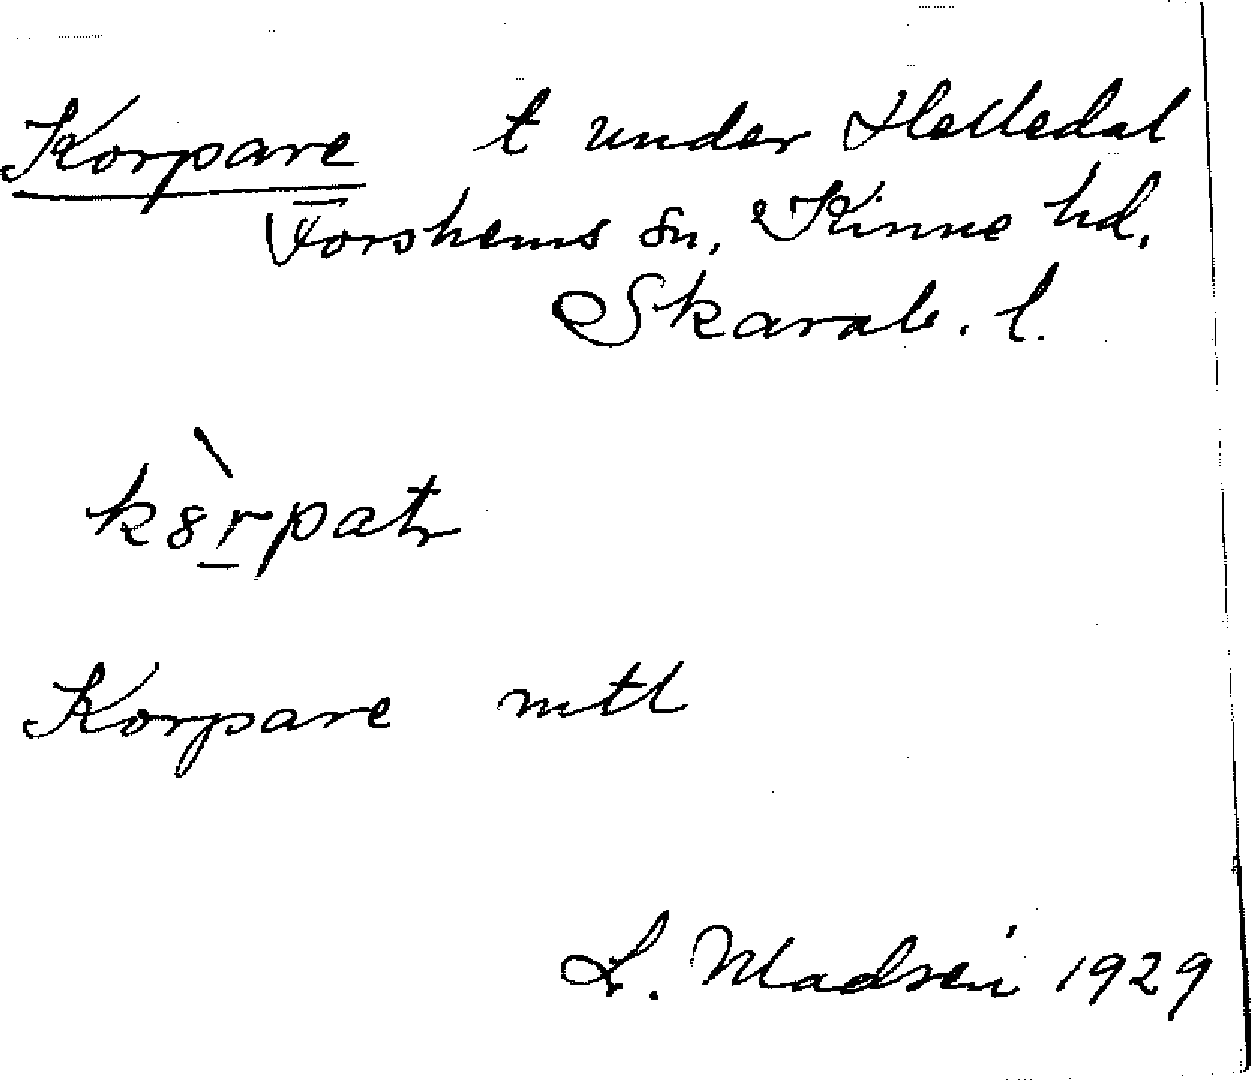 Korpare t under Helledal
Forshems sn, Kinne hd,
Skarab. l.
Korpare mtl
L. Madsén 1929